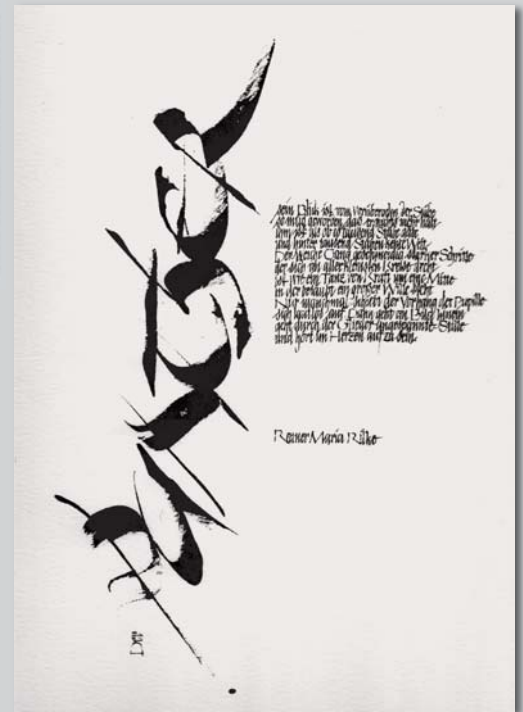 Der
Panther
Sein Blick ist vom Vorübergehn der Stäbe
so müd geworden daß er nichts mehr hält
Ihm ist als ob es tausend Stäbe gäbe
und hinter tausend Stäben keine Welt
Der weiche Gang geschmeidig starker Schritte
der sich im allerkleinsten Kreise dreht
ist wie ein Tanz von Kraft um eine Mitte
in der betäubt ein großer Wille steht
Nur manchmal schiebt der Vorhang der Pupille
sich lautlos auf Dann geht ein Bild hinein
geht durch der Glieder angespannte Stille
und hört im Herzen auf zu sein.
Rainer Maria Rilke